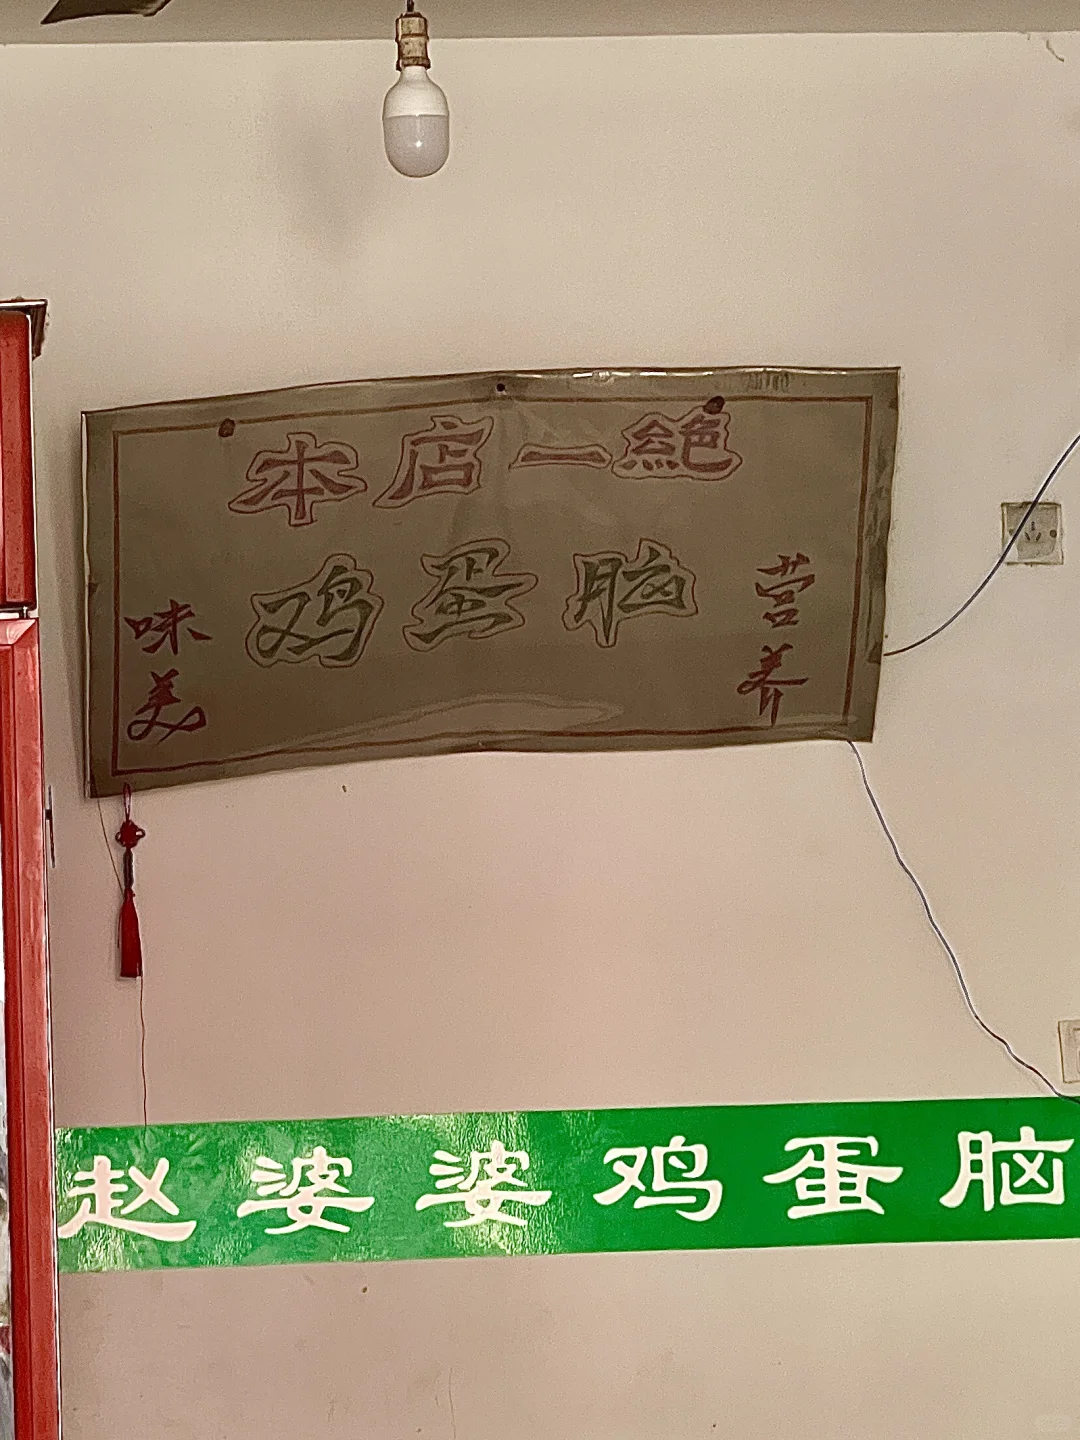 本店一絕
鸡蛋脑
营养
味美
赵婆婆鸡蛋脑